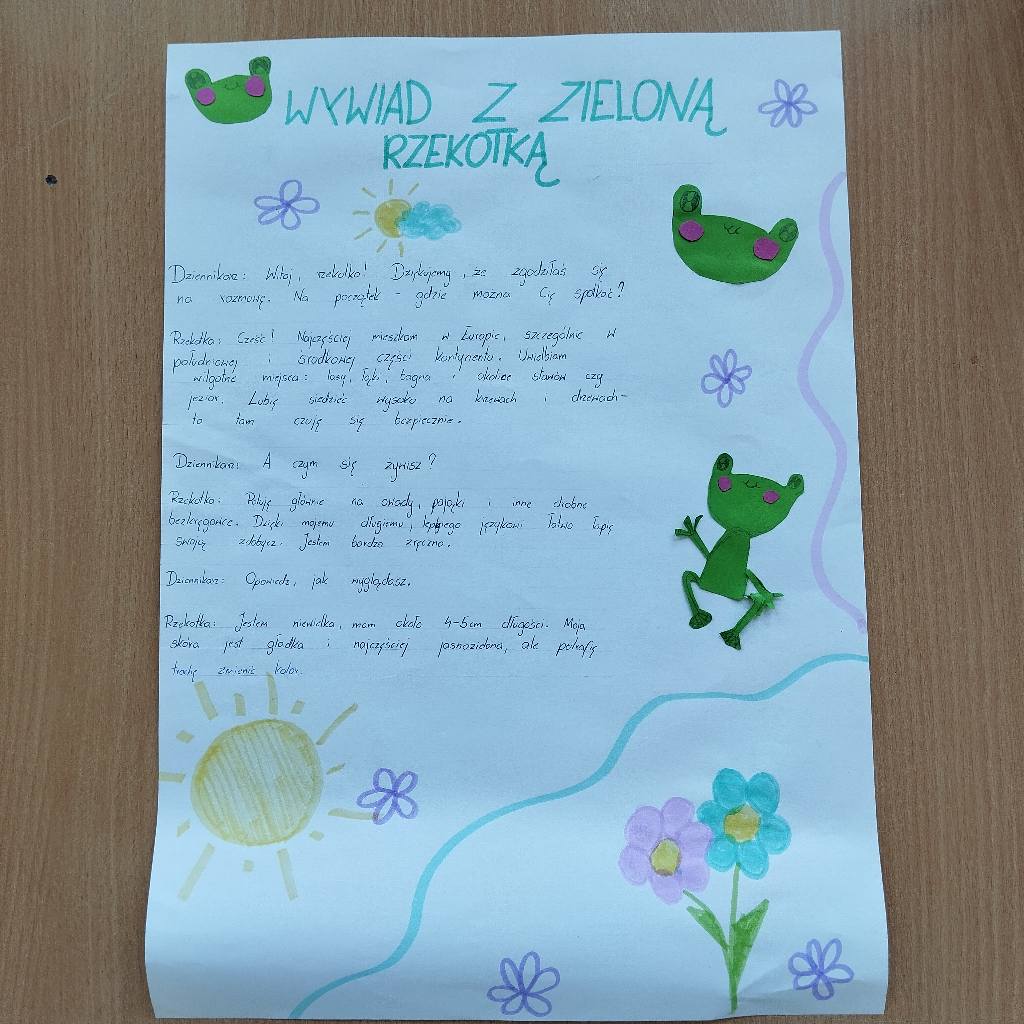 WYWIAD Z ZIELONĄ
RZEKOTKĄ
Dziennikarz: Witaj, rzekotko! Dziękujemy, że zgodziłaś się
na rozmowę. Na początek - gdzie można Cię spotkać?
Rzekotka: Cześć! Najczęściej mieszkam w Europie, szczególnie w
południowej i środkowej części kontynentu. Uwielbiam
wilgotne miejsca: lasy, łąki, bagna i okolice stawów czy
jezior. Lubię siedzieć wysoko na krzewach i drzewach-
to tam czuję się bezpiecznie.
Dziennikarz: A czym się żywisz?
Rzekotka: Poluję głównie na owady, pająki i inne drobne
bezkręgowce. Dzięki mojemu długiemu, lepkiego językowi łatwo łapię
swoją zdobycz. Jestem bardzo zręczna.
Dziennikarz: Opowiedz, jak wyglądasz.
Rzekotka: Jestem niewielka, mam około 4-5cm długości. Moja
skóra jest gładka i najczęściej jasnozielona, ale potrafię
trochę zmienić kolor.